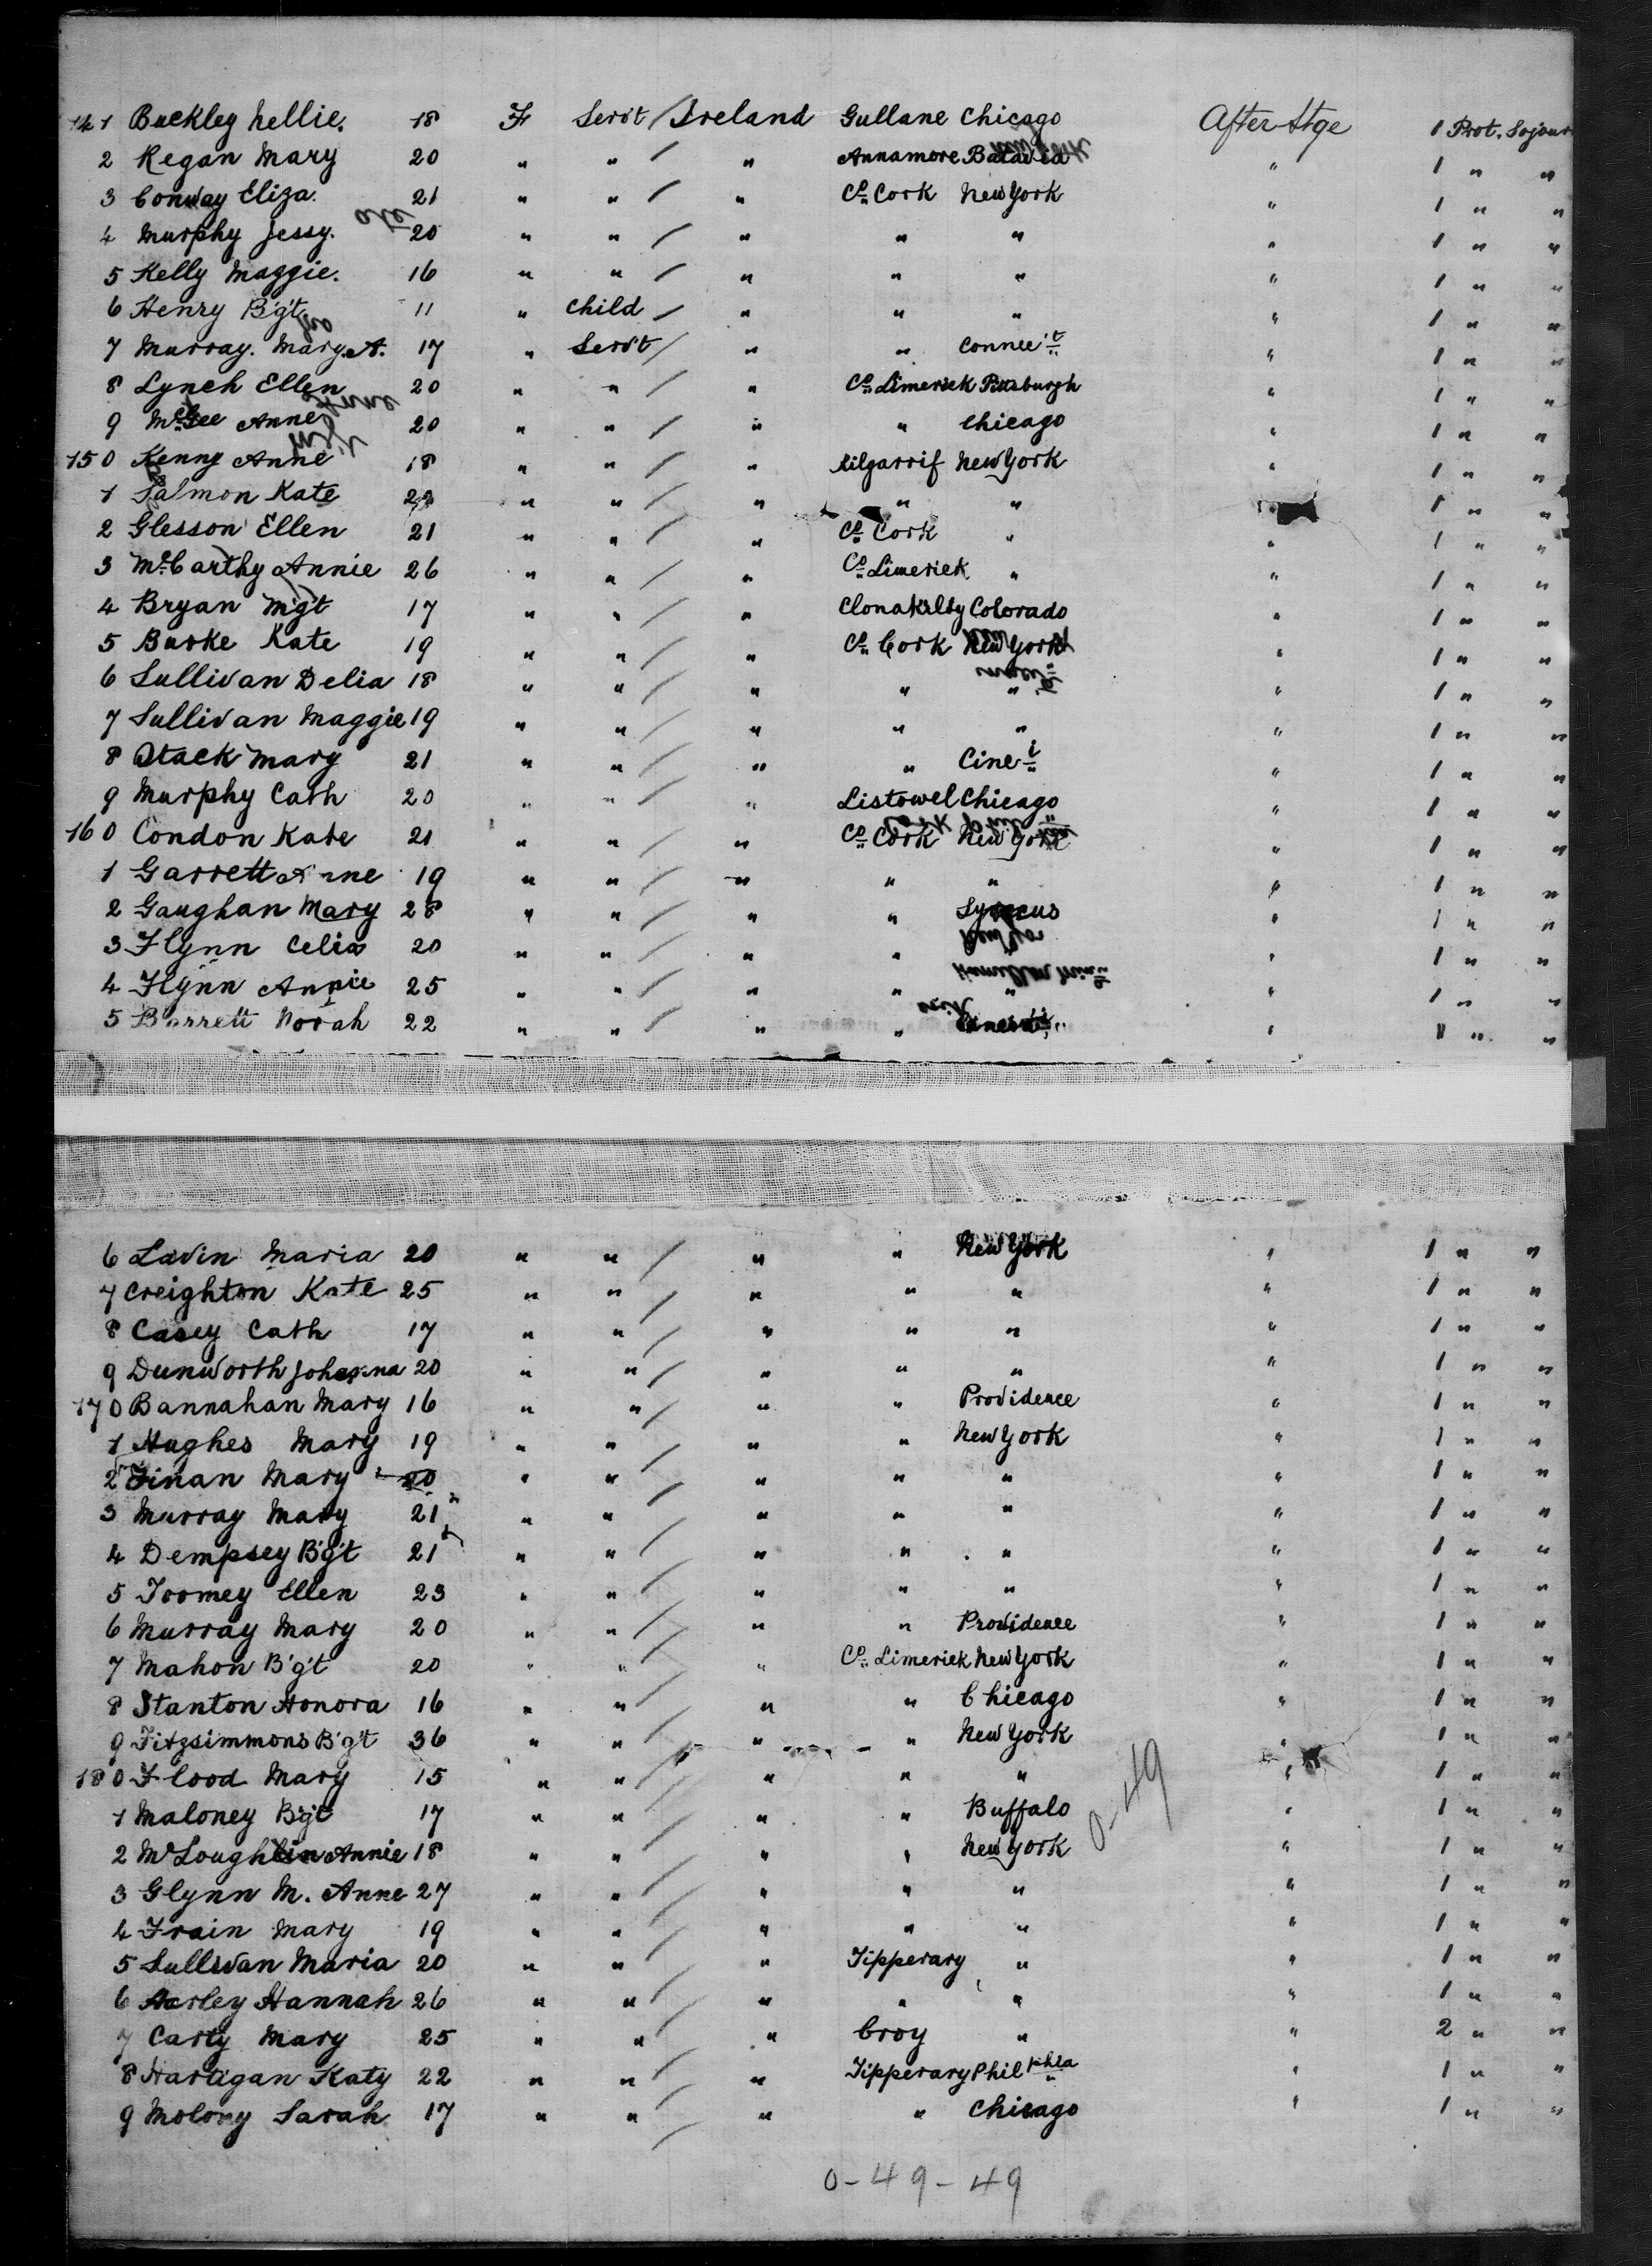 141 Buckley Nellie. 18 F Servt / Ireland Gullane Chicago After Stge 1 Prot. Sojour
2 Regan Mary 20 " " / " Annamore Batavia " 1 " "
3 Conway Eliza. 21 " " / " Co. Cork New York " 1 " "
4 Murphy Jessy. 20 " " / " " " " 1 " "
5 Kelly Maggie. 16 " " / " " " " 1 " "
6 Henry B'g't 11 " Child / " " " " 1 " "
7 Murray. Mary A. 17 " Servt / " " Connec't " 1 " "
8 Lynch Ellen 20 " " / Co. Limerick Pittsburgh " 1 " "
9 McGee Anne 20 " " / " " Chicago " 1 " "
150 Kenny Anne 18 " " / " Kilgarrif New York " 1 " "
1 Salmon Kate " " / " " " 1 " "
2 Glesson Ellen 21 " " / " Co. Cork " " 1 " "
3 McCarthy Annie 26 " " / " Co. Limerick " " 1 " "
4 Bryan Mgt 17 " " / " Clonakilty Colorado " 1 " "
5 Burke Kate 19 " " / " Co. Cork New York " 1 " "
6 Sullivan Delia 18 " " / " " " " 1 " "
7 Sullivan Maggie 19 " " / " " " " 1 " "
8 Stack Mary 21 " " / " " Cinc i " 1 " "
9 Murphy Cath 20 " " / " Listowel Chicago " 1 " "
160 Condon Kate 21 " " / " Co. Cork New York " 1 " "
1 Garrett Anne 19 " " / " " " " 1 " "
2 Gaughan Mary 28 " " / " " " 1 " "
3 Flynn Celia 20 " " / " " " 1 " "
4 Flynn Annie 25 " " / " " " " 1 " "
5 Barrett Norah 22 " " / " " " 1 " "
6 Lavin Maria 20 " " / " " New York " 1 " "
7 Creighton Kate 25 " " / " " " " 1 " "
8 Casey Cath 17 " " / " " " " 1 " "
9 Dunworth Johanna 20 " " / " " " " 1 " "
170 Bannahan Mary 16 " " / " " Providence " 1 " "
1 Hughes Mary 19 " " / " " New York " 1 " "
2 Finan Mary 20 " " / " " " " 1 " "
3 Murray Mary 21 " " / " " " " 1 " "
4 Dempsey B'g't 21 " " / " " " " 1 " "
5 Toomey Ellen 23 " " / " " " " 1 " "
6 Murray Mary 20 " " / " " Providence " 1 " "
7 Mahon B'g't 20 " " / " Co. Limerick New York " 1 " "
8 Stanton Honora 16 " " / " " Chicago " 1 " "
9 Fitzsimmons B'g't 36 " " / " " New York " 1 " "
180 Flood Mary 15 " " / " " " " 1 " "
1 Maloney B'g't 17 " " / " " Buffalo " 1 " "
0-49
2 McLoughlin Annie 18 " " / " " New York " 1 " "
3 Glynn M. Anne 27 " " / " " " " 1 " "
4 Frain Mary 19 " " / " " " " 1 " "
5 Sullivan Maria 20 " " / " Tipperary " " 1 " "
6 Harley Hannah 26 " " / " " " " 1 " "
7 Carty Mary 25 " " / " Croy " " 2 " "
8 Hartigan Katy 22 " " / " Tipperary Philphia " 1 " "
9 Molony Sarah 17 " " / " " Chicago " 1 " "
0-49-49